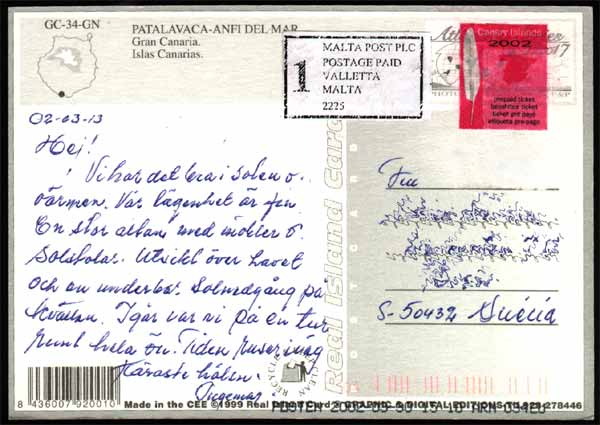 GC-34-GN
PATALAVACA-ANFI DEL MAR
Gran Canaria.
Islas Canarias.
1
MALTA POST PLC
POSTAGE PAID
VALLETTA
MALTA
2225
Canary Islands
2002
prepaid ticket
ticket pre payé
etiqueta pre-pago
02-03-13
Hej!
Vi har det bra i solen o.
värmen. Vår lägenhet är fin
En stor altan med möbler o.
Solstolar. Utsikt över havet
och en underbar Solnedgång på
kvällen. Igår var vi på en tur
runt hela ön. Tiden rusar iväg
Käraste hälsn.
Ingemar
S-50432 Suécia
Real Island Card
POSTCARD
8 436007 920010
Made in the CEE ©1999 Real Island Card's GRAPHIC & DIGITAL EDITIONS Tl.928-278446
POSTEN 2002-09-30 15-10 ARN